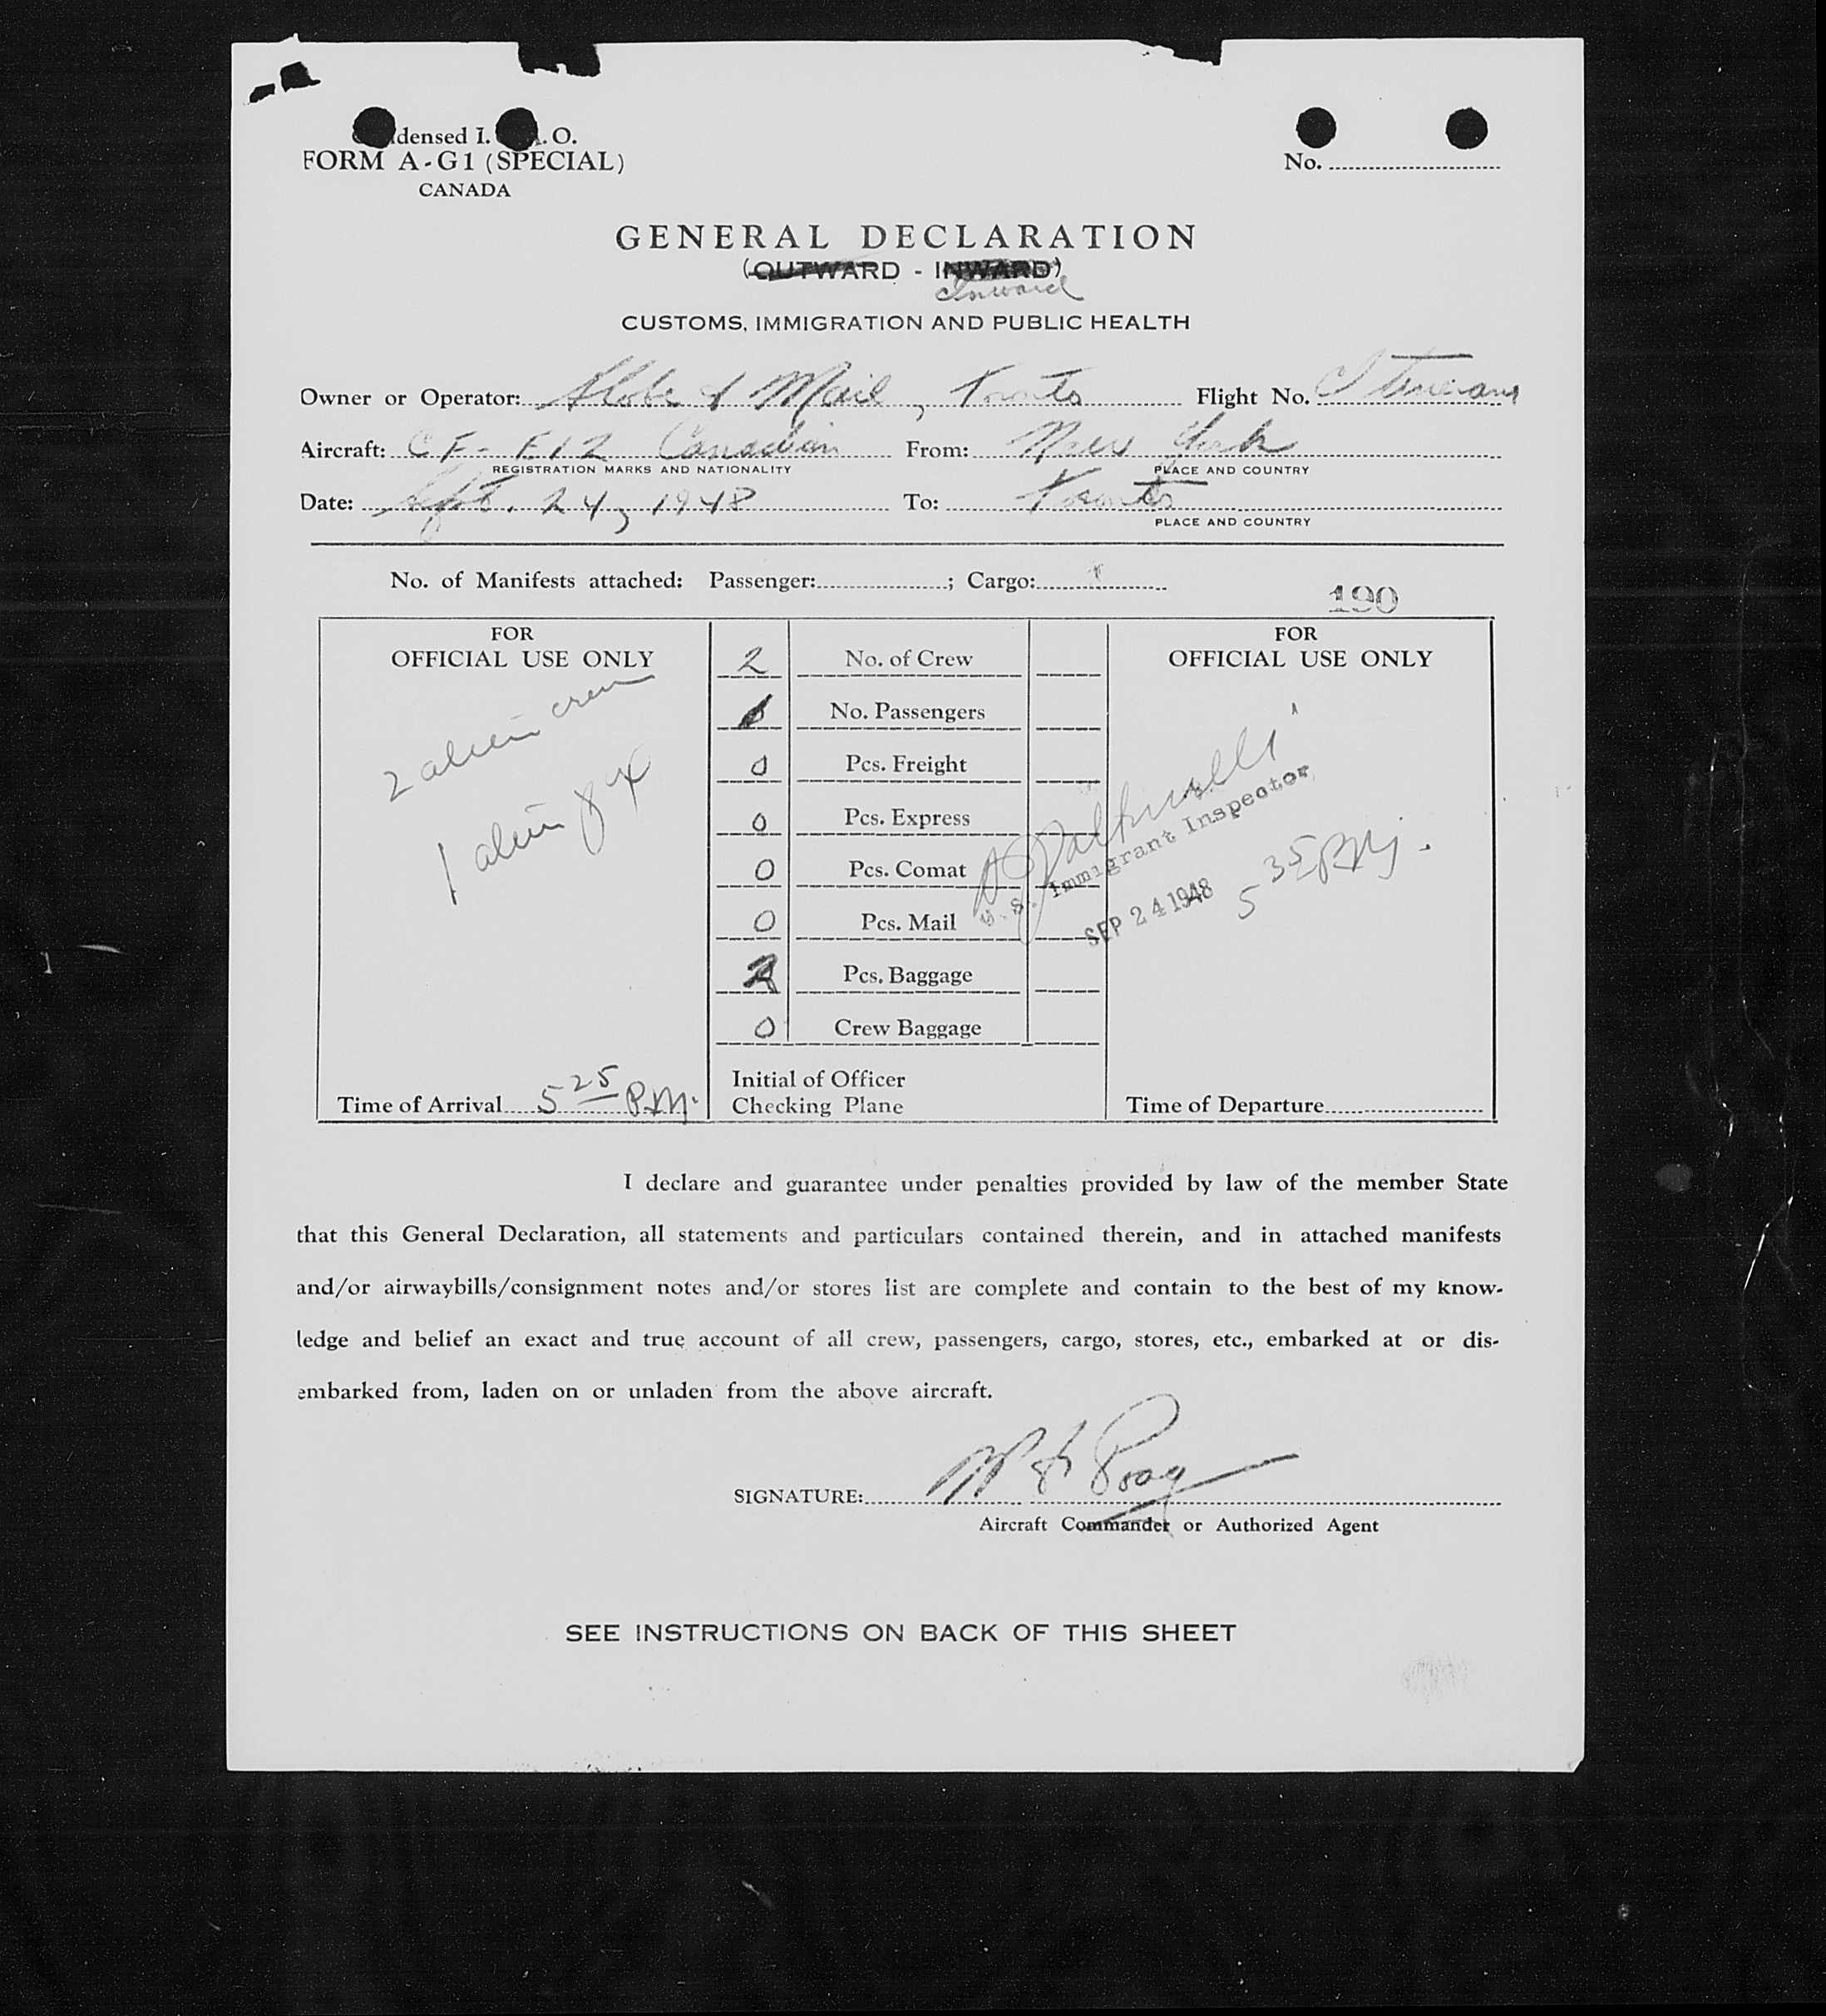 densed I. . O.
FORM A-G1 (SPECIAL)
CANADA
No.
GENERAL DECLARATION
(OUTWARD - INWARD)
Inward
CUSTOMS, IMMIGRATION AND PUBLIC HEALTH
Owner or Operator: Globe & Mail, Toronto Flight No.
Aircraft: CF- Canadian From: New York
REGISTRATION MARKS AND NATIONALITY PLACE AND COUNTRY
Date: Sept. 24, 1948 To: Toronto
PLACE AND COUNTRY
No. of Manifests attached: Passenger: ; Cargo:
190
FOR
OFFICIAL USE ONLY
2 alien crew
1 alien
Time of Arrival 5 25 P.M.
2 No. of Crew
No. Passengers
0 Pcs. Freight
0 Pcs. Express
0 Pcs. Comat
0 Pcs. Mail
Pcs. Baggage
0 Crew Baggage
Initial of Officer
Checking Plane
FOR
OFFICIAL USE ONLY
U.S. Immigrant Inspector
SEP 24 1948
5 35 PM.
Time of Departure
I declare and guarantee under penalties provided by law of the member State
that this General Declaration, all statements and particulars contained therein, and in attached manifests
and/or airwaybills/consignment notes and/or stores list are complete and contain to the best of my know-
ledge and belief an exact and true account of all crew, passengers, cargo, stores, etc., embarked at or dis-
embarked from, laden on or unladen from the above aircraft.
SIGNATURE:
Aircraft Commander or Authorized Agent
SEE INSTRUCTIONS ON BACK OF THIS SHEET